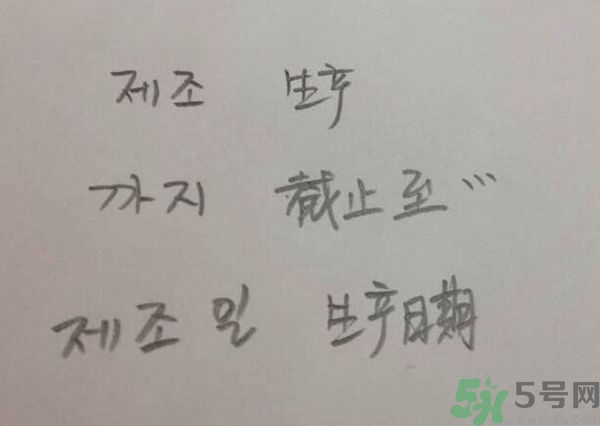 제조 生产
까지 截止至...
제조일 生产日期
5号网